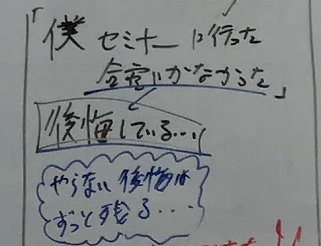 「僕 セミナーに行った
全く いかなかった」
後悔している…
やらない後悔は
ずっと残る…